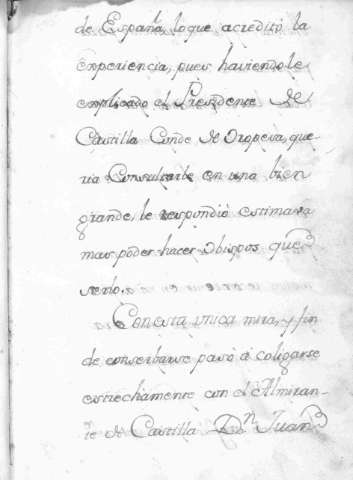 de España, lo que acreditó la
experiencia, pues haviendole
explicado el Presidente de
Castilla Conde de Oropesa, que
ria Consultarle en una bien
grande, le respondió estimara
mas poder hacer Obispos que
serlo.
Con esta unica mira, y fin
de conserbarse pasó á coligarse
estrechamente con el Almiran-
te de Castilla Dn Juan